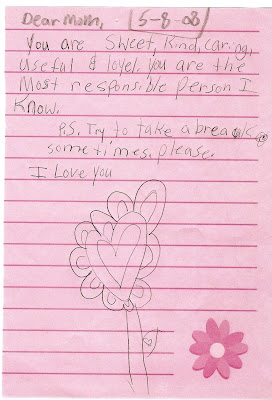 Dear Mom, 5-8-08
You are Sweet, Kind, caring,
useful & loyel. you are the
Most responsible Person I
Know.
P.S. Try to take a breaak
some times. please.
I Love you